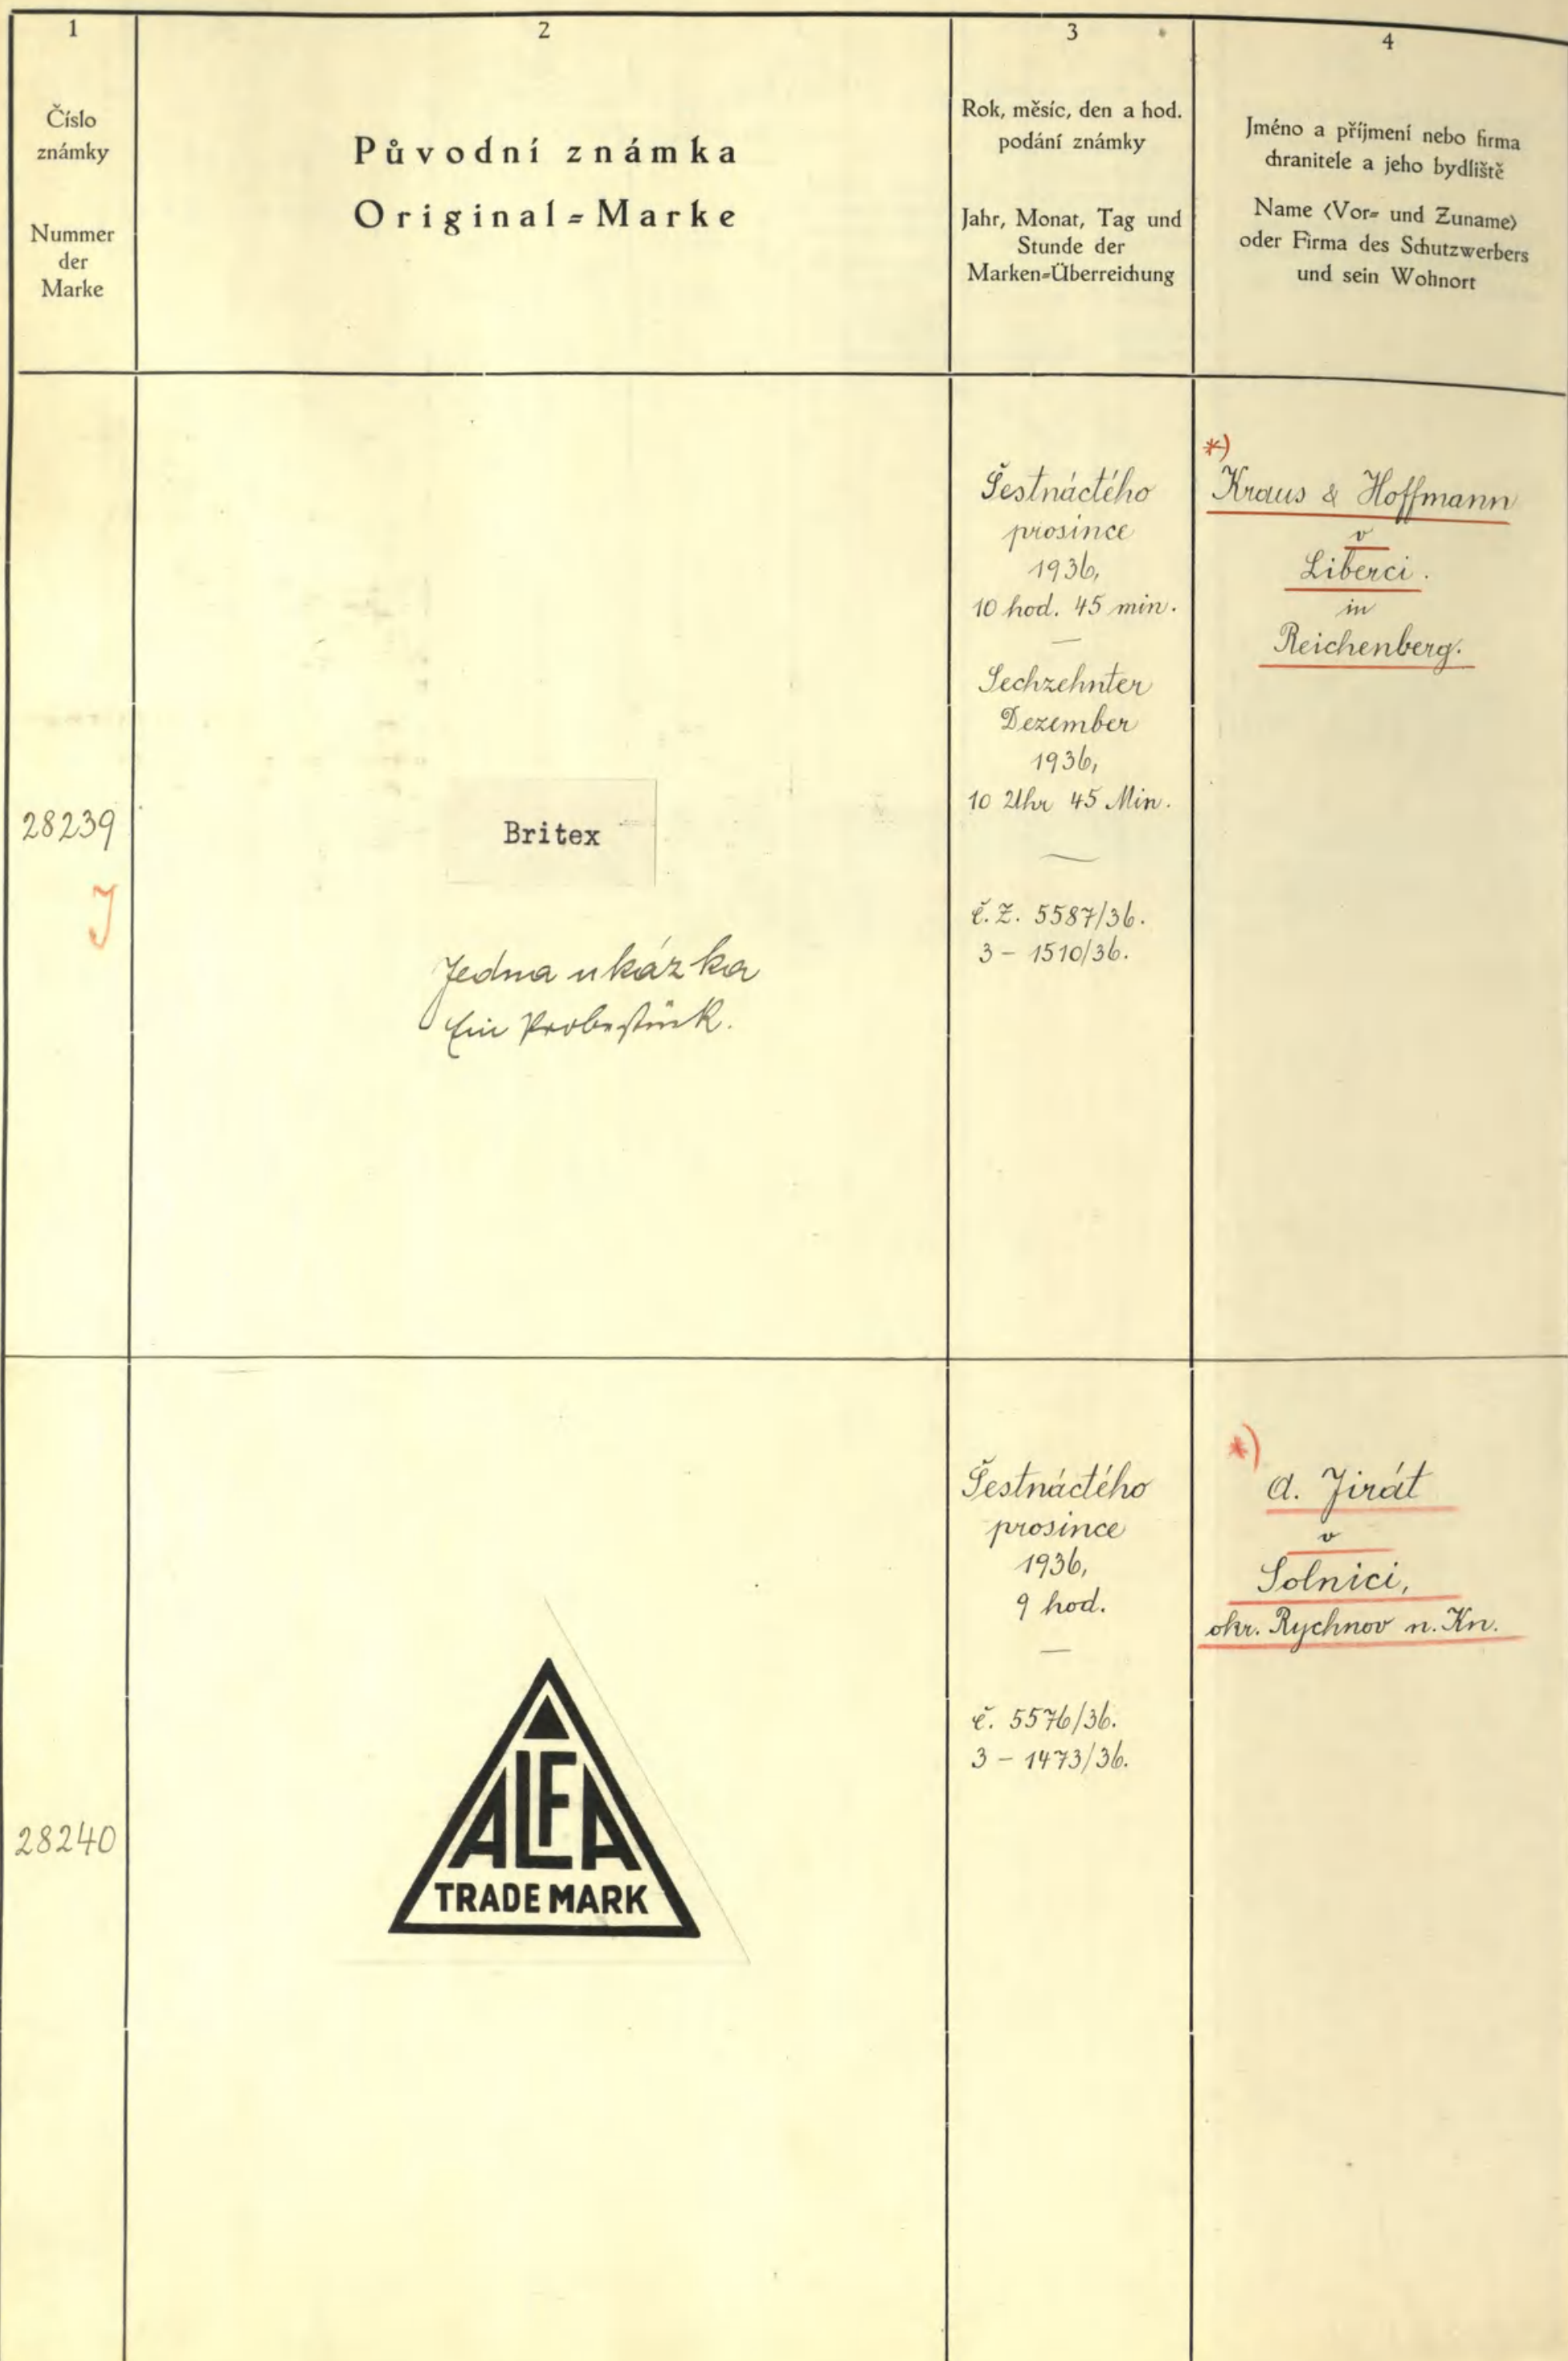 1
Číslo
známky
Nummer
der
Marke
2
Původní známka
Original=Marke
3
Rok, měsíc, den a hod.
podání známky
Jahr, Monat, Tag und
Stunde der
Marken=Überreichung
4
Jméno a příjmení nebo firma
chranitele a jeho bydliště
Name (Vor= und Zuname)
oder Firma des Schutzwerbers
und sein Wohnort
28239
J
Britex
Jedna ukázka
Ein Probestück.
Šestnáctého
prosince
1936,
10 hod. 45 min.
—
Sechzehnter
Dezember
1936,
10 Uhr 45 Min.
—
č.Z. 5587/36.
3 – 1510/36.
*)
Kraus & Hoffmann
v
Liberci.
in
Reichenberg.
28240
ALFA
TRADE MARK
Šestnáctého
prosince
1936,
9 hod.
—
č. 5576/36.
3 – 1473/36.
*)
A. Jirát
v
Solnici,
okr. Rychnov n. Kn.